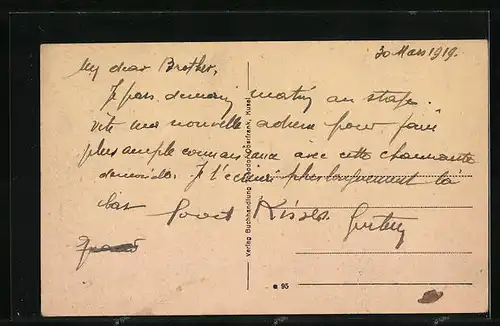 30 Mars 1919.
My dear Brother,
Je pars demain matin au stage.
vite ma nouvelle adresse pour faire
plus ample connaissance avec cette charmante
demoiselle. Je t'écrirai plus longuement là
bas Good Kisses
Verlag Buchhandlung Theodor Oberfrank, Kusel
e 95